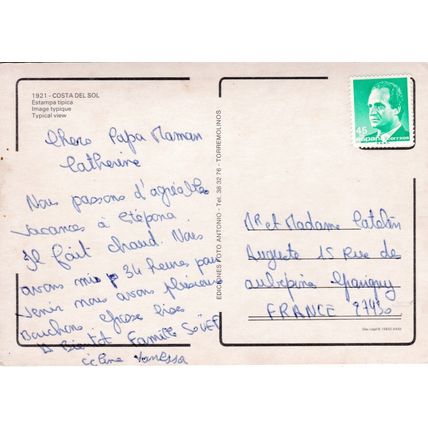 1921 - COSTA DEL SOL
Estampa típica
Image typique
Typical view
Chers Papa Maman
Catherine
Nous passons d'agréables
vacances à Estepona
Il fait chaud. Nous
avons mis 34 heures pour
venir nous avons plusieurs
Bouchons. Grosses bises
A Bientot Famille
Céline Vanessa
EDICIONES FOTO ANTONIO - Tel. 38 32 76 - TORREMOLINOS
45
españa correos
Mr et Madame Catalan
Auguste 15 Rue de
aubépine
FRANCE